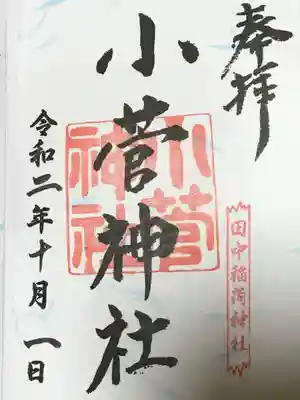 奉拝
小菅神社
小菅神社
田中稲荷神社
令和二年十月一日